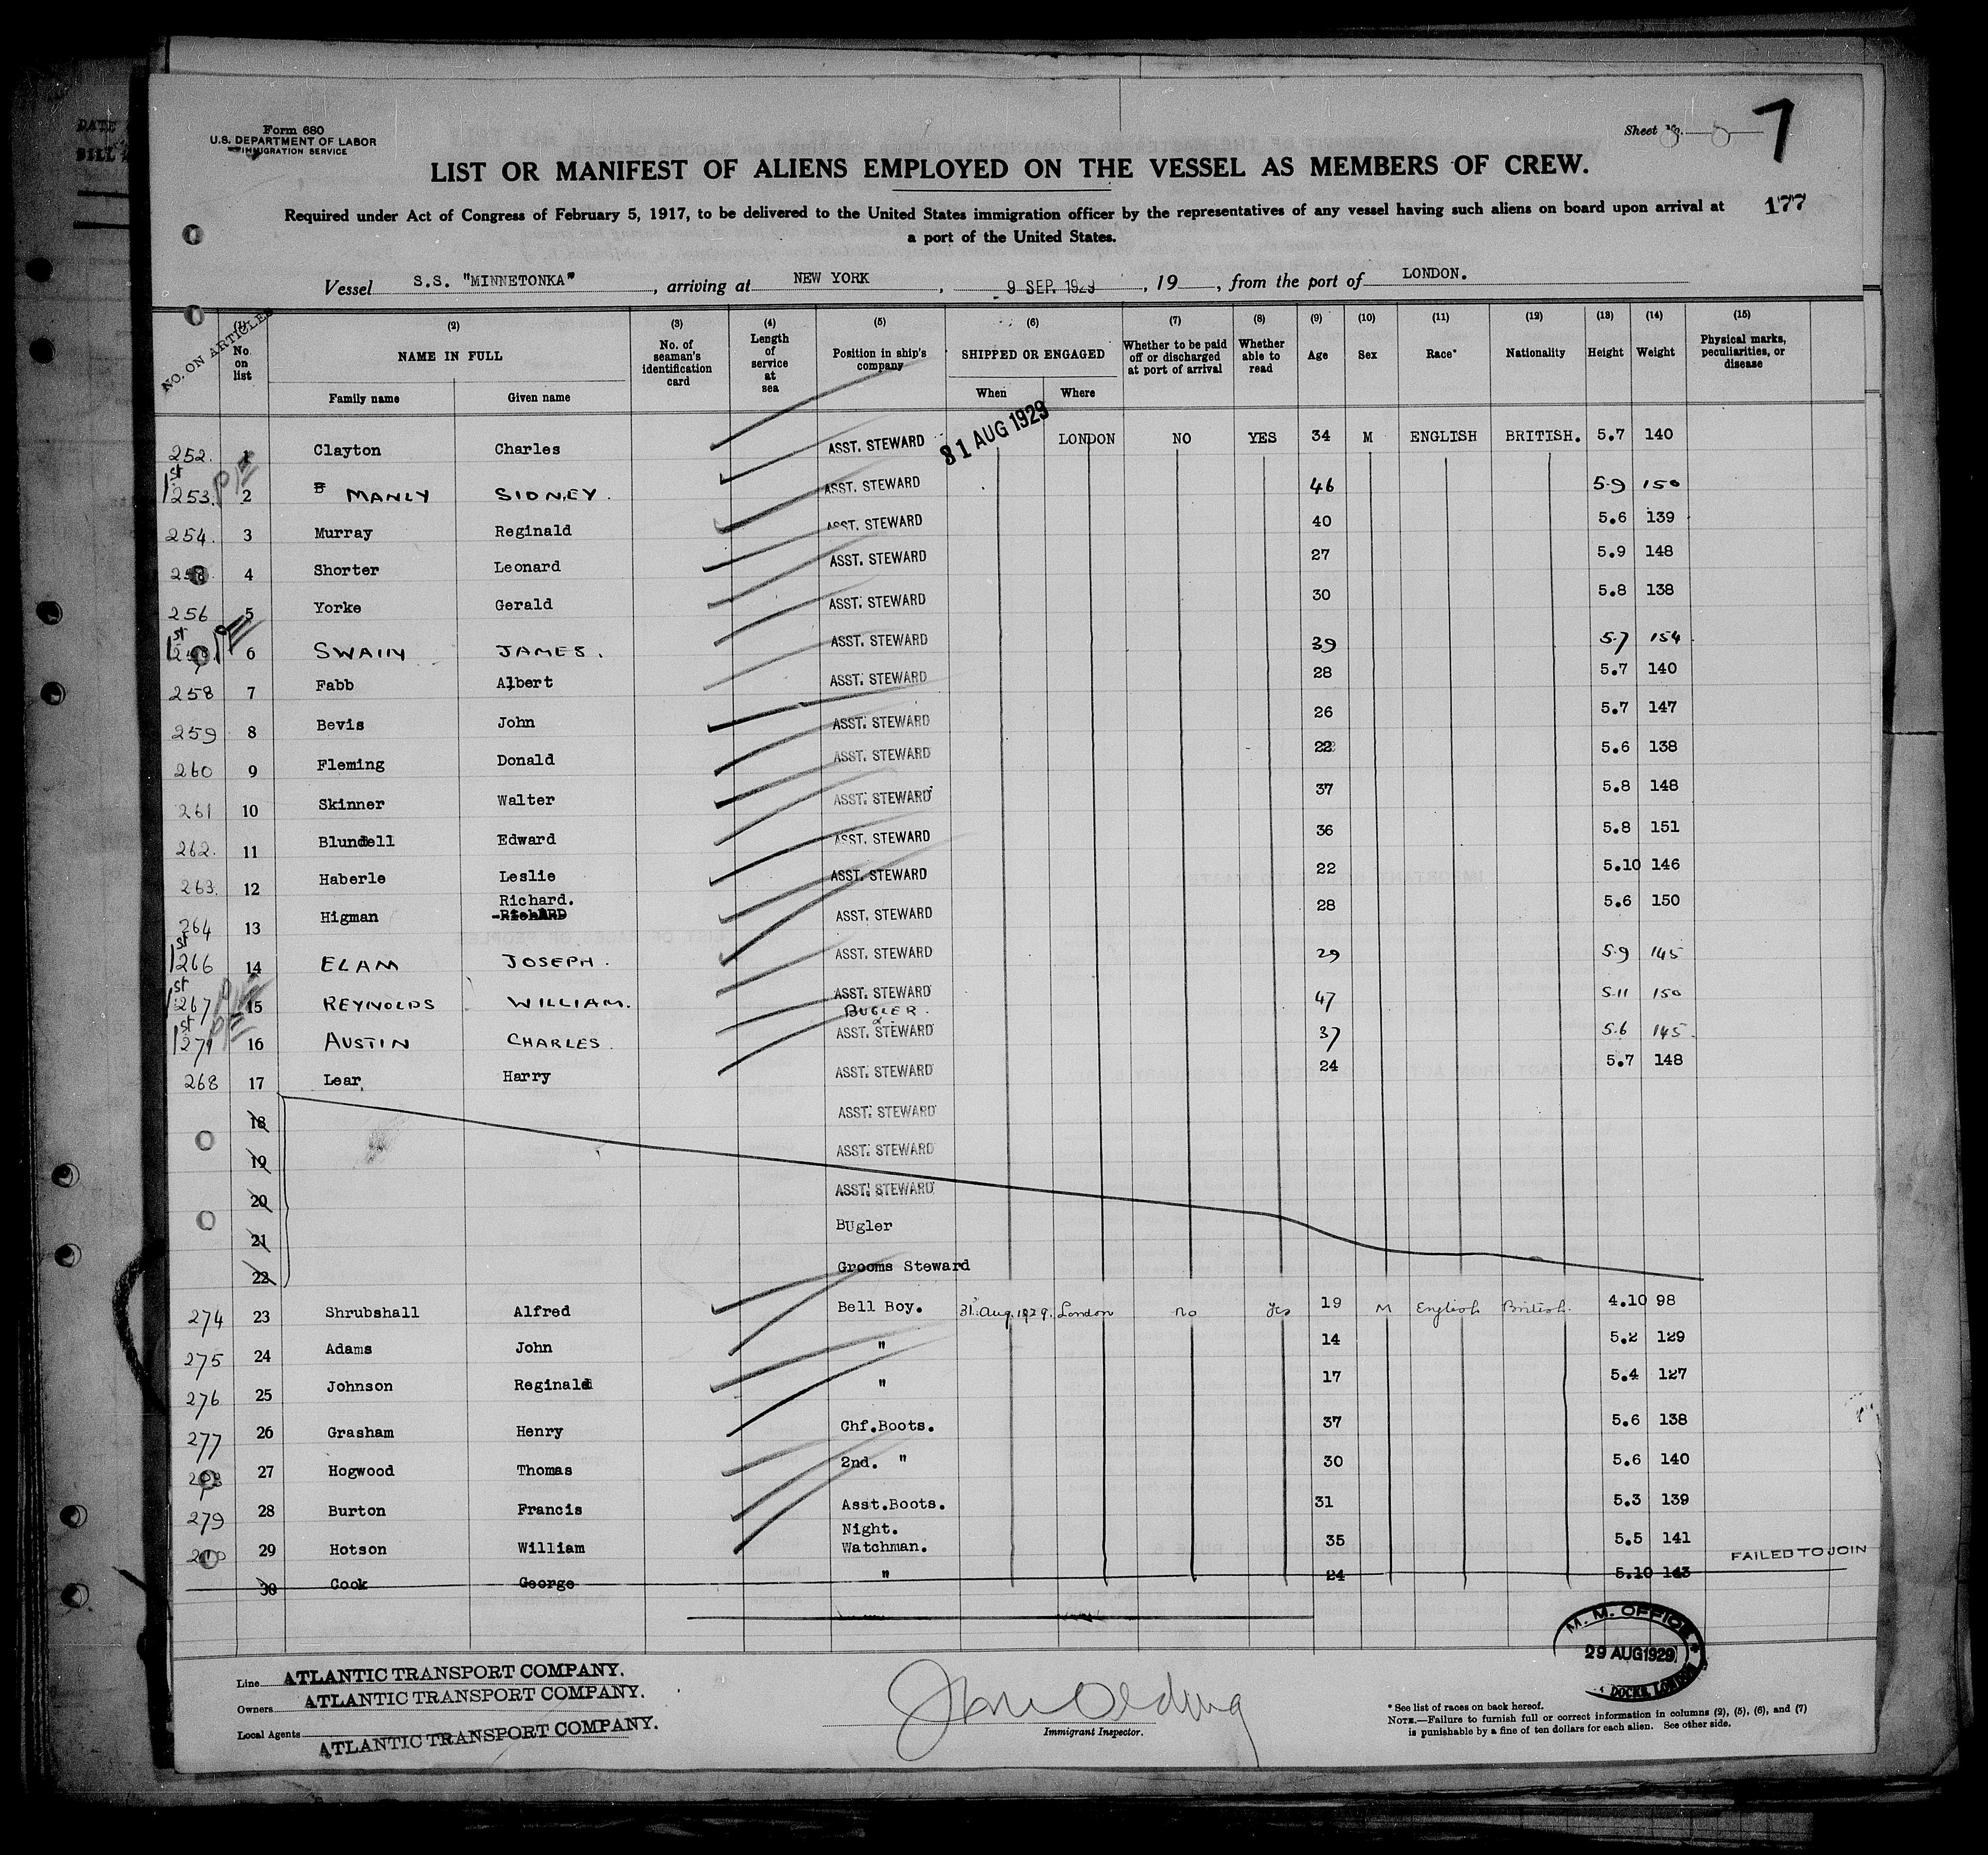 Form 680
U.S. DEPARTMENT OF LABOR
IMMIGRATION SERVICE
Sheet No.
7
177
LIST OR MANIFEST OF ALIENS EMPLOYED ON THE VESSEL AS MEMBERS OF CREW.
Required under Act of Congress of February 5, 1917, to be delivered to the United States immigration officer by the representatives of any vessel having such aliens on board upon arrival at
a port of the United States.
Vessel S.S. "MINNETONKA", arriving at NEW YORK, 9 SEP. 1929, 19, from the port of LONDON.
NO. ON ARTICLES (1) (2) (3) (4) (5) (6) (7) (8) (9) (10) (11) (12) (13) (14) (15)
No. on list NAME IN FULL No. of seaman's identification card Length of service at sea Position in ship's company SHIPPED OR ENGAGED Whether to be paid off or discharged at port of arrival Whether able to read Age Sex Race* Nationality Height Weight Physical marks, peculiarities, or disease
Family name Given name When Where
252. 1 Clayton Charles ASST. STEWARD 31 AUG 1929 LONDON NO YES 34 M ENGLISH BRITISH. 5.7 140
1st 253. 2 B MANLY SIDNEY. ASST. STEWARD 46 5.9 150
254. 3 Murray Reginald ASST. STEWARD 40 5.6 139
4 Shorter Leonard ASST. STEWARD 27 5.9 148
256 5 Yorke Gerald ASST. STEWARD 30 5.8 138
1st 6 JAMES. ASST. STEWARD 39 5.7 154
258 7 Fabb Albert ASST. STEWARD 28 5.7 140
259 8 Bevis John ASST. STEWARD 26 5.7 147
260 9 Fleming Donald ASST. STEWARD 22 5.6 138
261 10 Skinner Walter ASST. STEWARD 37 5.8 148
262. 11 Blundell Edward ASST. STEWARD 36 5.8 151
263. 12 Haberle Leslie ASST. STEWARD 22 5.10 146
Richard.
264 13 Higman RichARD ASST. STEWARD 28 5.6 150
1st 266 14 ELAM JOSEPH. ASST. STEWARD 29 5.9 145
1st 267 15 REYNOLDS WILLIAM. ASST. STEWARD 47 5.11 150
BUGLER.
&
1st 271 16 AUSTIN CHARLES. ASST. STEWARD 37 5.6 145.
268 17 Lear Harry ASST. STEWARD 24 5.7 148
18 ASST. STEWARD
19 ASST. STEWARD
20 ASST. STEWARD
21 BUgler
22 Grooms Steward
274 23 Shrubshall Alfred Bell Boy. 31st Aug. 1929. London no yes 19 M English British. 4.10 98
275 24 Adams John " 14 5.2 129
276 25 Johnson Reginald " 17 5.4 127
277 26 Grasham Henry Chf.Boots. 37 5.6 138
27 Hogwood Thomas 2nd. " 30 5.6 140
279 28 Burton Francis Asst.Boots. 31 5.3 139
Night.
29 Hotson William Watchman. 35 5.5 141
30 Cook George " 24 5.10 143 FAILED TO JOIN
M. M. OFFICE
29 AUG 1929
DOCKS, LONDON
Line ATLANTIC TRANSPORT COMPANY.
Owners ATLANTIC TRANSPORT COMPANY.
Local Agents ATLANTIC TRANSPORT COMPANY.
Immigrant Inspector.
* See list of races on back hereof.
NOTE.—Failure to furnish full or correct information in columns (2), (5), (6), and (7)
is punishable by a fine of ten dollars for each alien. See other side.